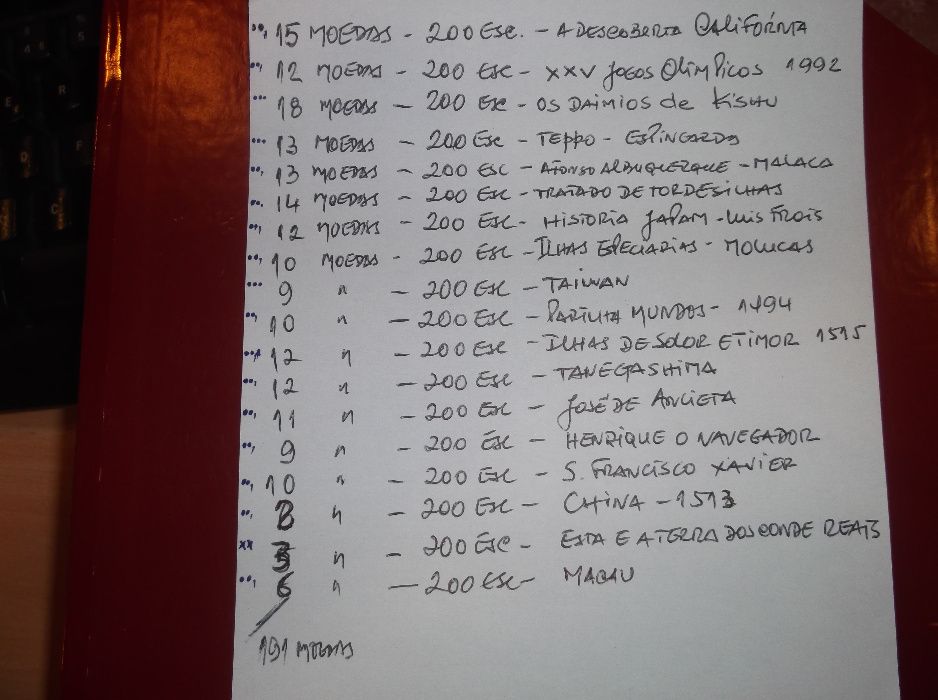 15 MOEDAS - 200 ESC. - A DESCOBERTA CALIFÓRNIA
12 MOEDAS - 200 ESC - XXV JOGOS OLIMPICOS 1992
18 MOEDAS - 200 ESC - OS DAIMIOS de KISHU
13 MOEDAS - 200 ESC - TEPPO - ESPINGARDA
13 MOEDAS - 200 ESC - AFONSO ALBUQUERQUE - MALACA
14 MOEDAS - 200 ESC - TRATADO DE TORDESILHAS
12 MOEDAS - 200 ESC - HISTORIA JAPAM - LUIS FROIS
10 MOEDAS - 200 ESC - ILHAS ESPECIARIAS - MOLUCAS
9 " - 200 ESC - TAIWAN
10 " - 200 ESC - PARTILHA MUNDOS - 1494
12 " - 200 ESC - ILHAS DE SOLOR E TIMOR 1515
12 " - 200 ESC - TANEGASHIMA
11 " - 200 ESC - JOSÉ DE ANCIETA
9 " - 200 ESC - HENRIQUE O NAVEGADOR
10 " - 200 ESC - S. FRANCISCO XAVIER
" - 200 ESC - CHINA - 1513
" - 200 ESC - ESTA E A TERRA REAIS
6 " - 200 ESC - MACAU
191 MOEDAS